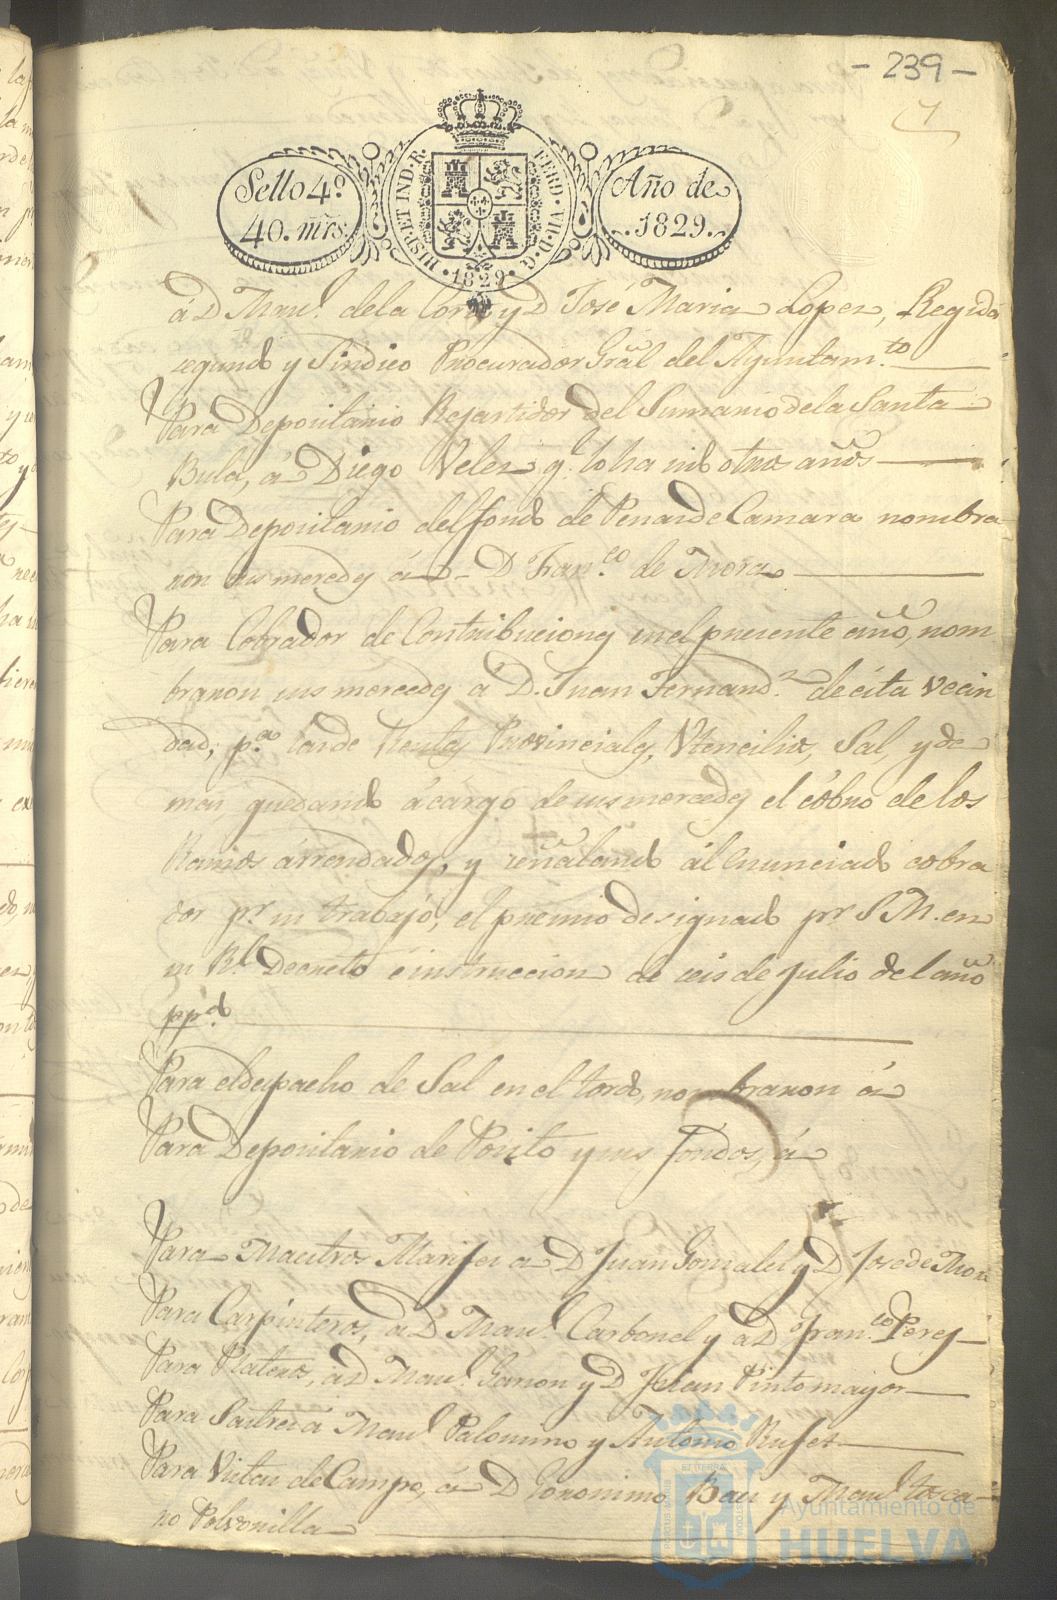 - 239 -
Sello 4º
40. mrs.
HISP. ET IND. R.
FERD. VII. D. G.
1829
Año de
1829.
á D Man.l de la Corte y D José Maria Lopez, Regidor
segundo y Sindico Procurador Gral del Ayuntam.to
Para Depositario Repartidor del Sumario de la Santa
Bula, á Diego Velez q.e lo ha sido otros años
Para Depositario del fondo de Penas de Camara nombra
ron sus mercedes á D. Fran.co de Mora
Para Cobrador de Contribuciones en el presente año, nom
braron sus mercedes á D. Juan Fernand.z de esta vecin
dad, p.a las de Rentas Provinciales, Utencilios, Sal, y de
mas quedando á cargo de sus mercedes el cobro de los
Ramos arrendados, y señalando al enunciado cobra
dor pr. su trabajo, el premio designado pr. S. M. en
su Rl. Decreto é instruccion de seis de Julio del año
pp.do
Para el despacho de Sal en el tordo, nombraron á
Para Depositario de Posito y sus fondos, á
Para Maestros Alarifes a D Juan Gonzalez y D Jose de Mora
Para Carpinteros, á D. Man.l Carbonel y á D Fran.co Perez
Para Plateros, á D Man.l Garzon y D Pinto mayor
Para Sastres á Man.l Palomino y Antonio Rufet
Para Vistas de Campo, á D Geronimo Bau y Man.l Tosca-
no Polvonilla
Ayuntamiento de
HUELVA